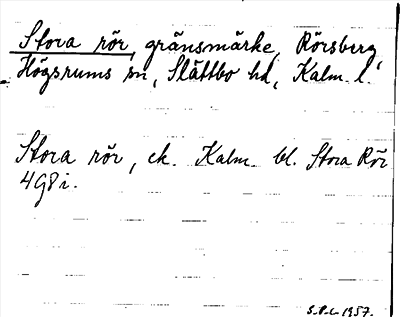 Stora rör, gränsmärke, Rörsberg,
Högsrums sn, Slättbo hd, Kalm. l.
Stora rör, ek. Kalm. bl. Stora Rör
4G8i.
S.P.L 1957.